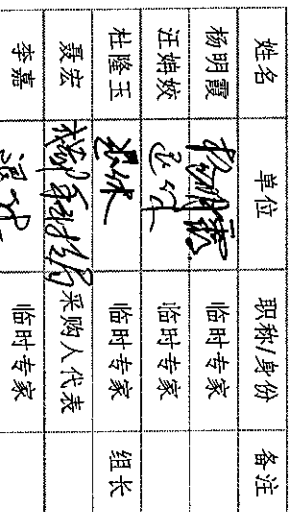 姓名 单位 职称/身份 备注
杨明霞 杨明霞 临时专家
汪娟姣 临时专家
杜隆玉 退休 临时专家 组长
聂宏 采购人代表
李嘉 退休 临时专家